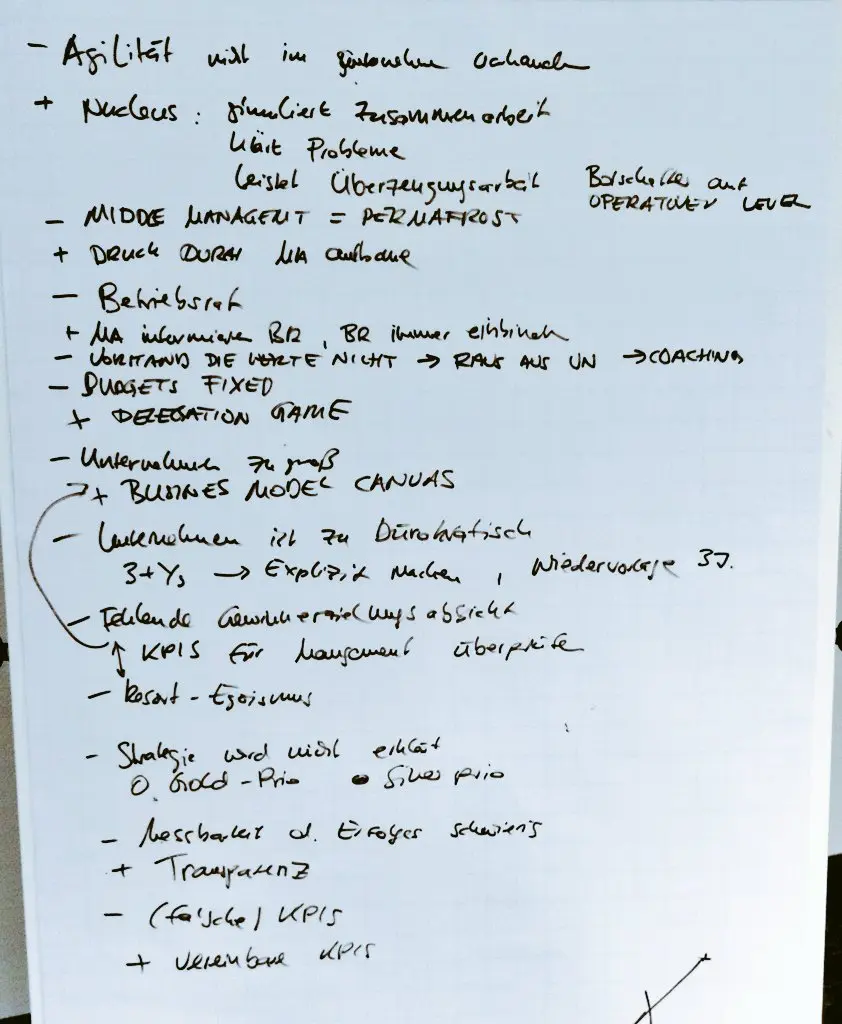 - Agilität nicht im vorhanden
+ Nucleus: simuliert Zusammenarbeit
klärt Probleme
leistet Überzeugungsarbeit Botschafter auf
OPERATIVEN LEVEL
- MIDDLE MANAGEMENT = PERMAFROST
+ DRUCK DURCH MA aufbaue
- Betriebsrat
+ MA informieren BR, BR immer einbinden
- VORSTAND DIE WERTE NICHT → RAUS AUS UN → COACHING
- BUDGETS FIXED
+ DELEGATION GAME
- Unternehmen zu groß
+ BUSINES MODEL CANVAS
- Unternehmen ist zu Bürokratisch
→ Explizit machen, Wiedervorlage 3J.
- Fehlende Gewinnerzielungsabsicht
KPIS für Mangement überprüfen
- Resort-Egoismus
- Strategie wird nicht erklät
O Gold-Prio ● Silber prio
- Messbarkeit d. Erfolges schwierig
+ Transparenz
- (falsche) KPIS
+ vereinbare KPIS